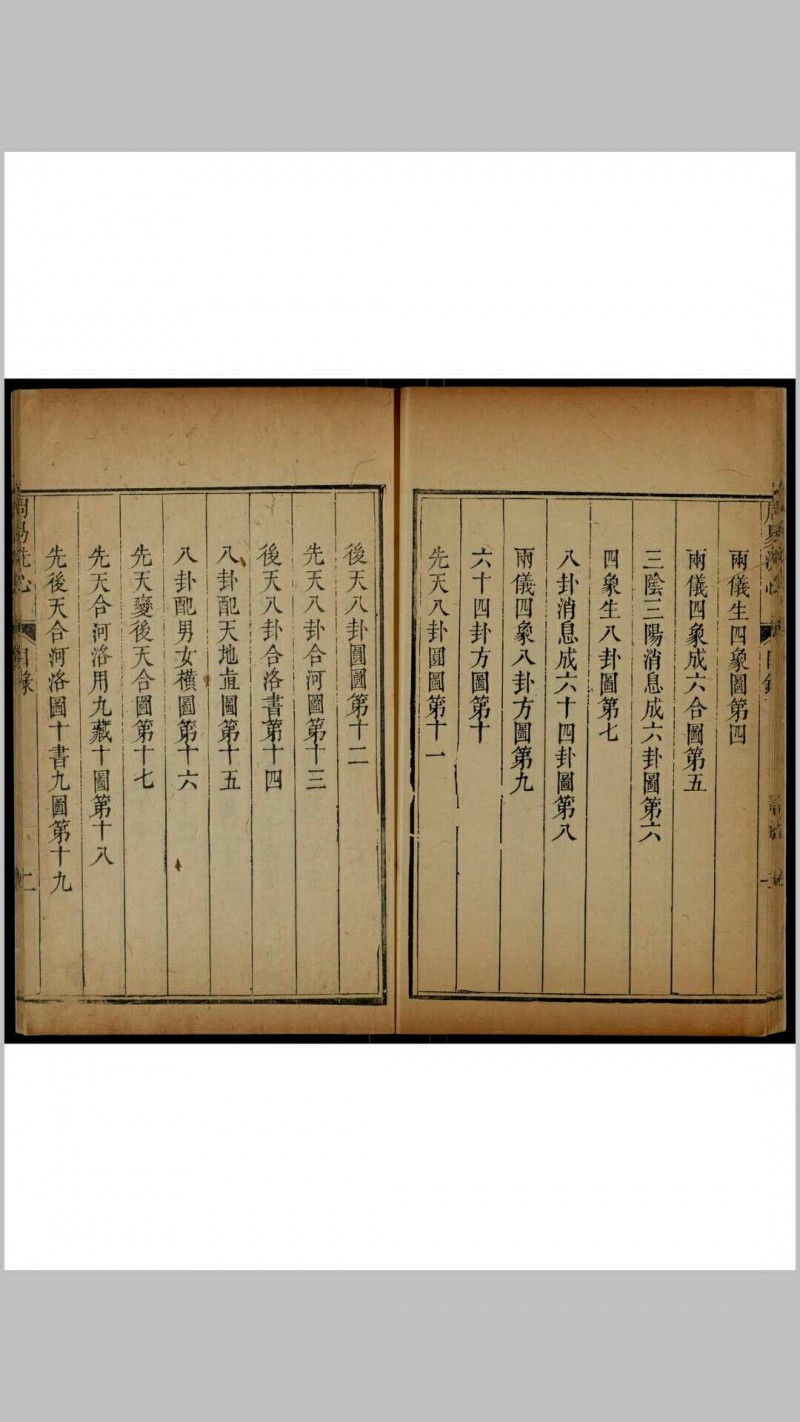 兩儀生四象圖第四
兩儀四象成六合圖第五
三陰三陽消息成六卦圖第六
四象生八卦圖第七
八卦消息成六十四卦圖第八
兩儀四象八卦方圖第九
六十四卦方圖第十
先天八卦圓圖第十一
後天八卦圓圖第十二
先天八卦合河圖第十三
後天八卦合洛書第十四
八卦配天地直圖第十五
八卦配男女橫圖第十六
先天變後天合圖第十七
先天合河洛用九藏十圖第十八
先後天合河洛圖十書九圖第十九
周易洗心 目錄 二